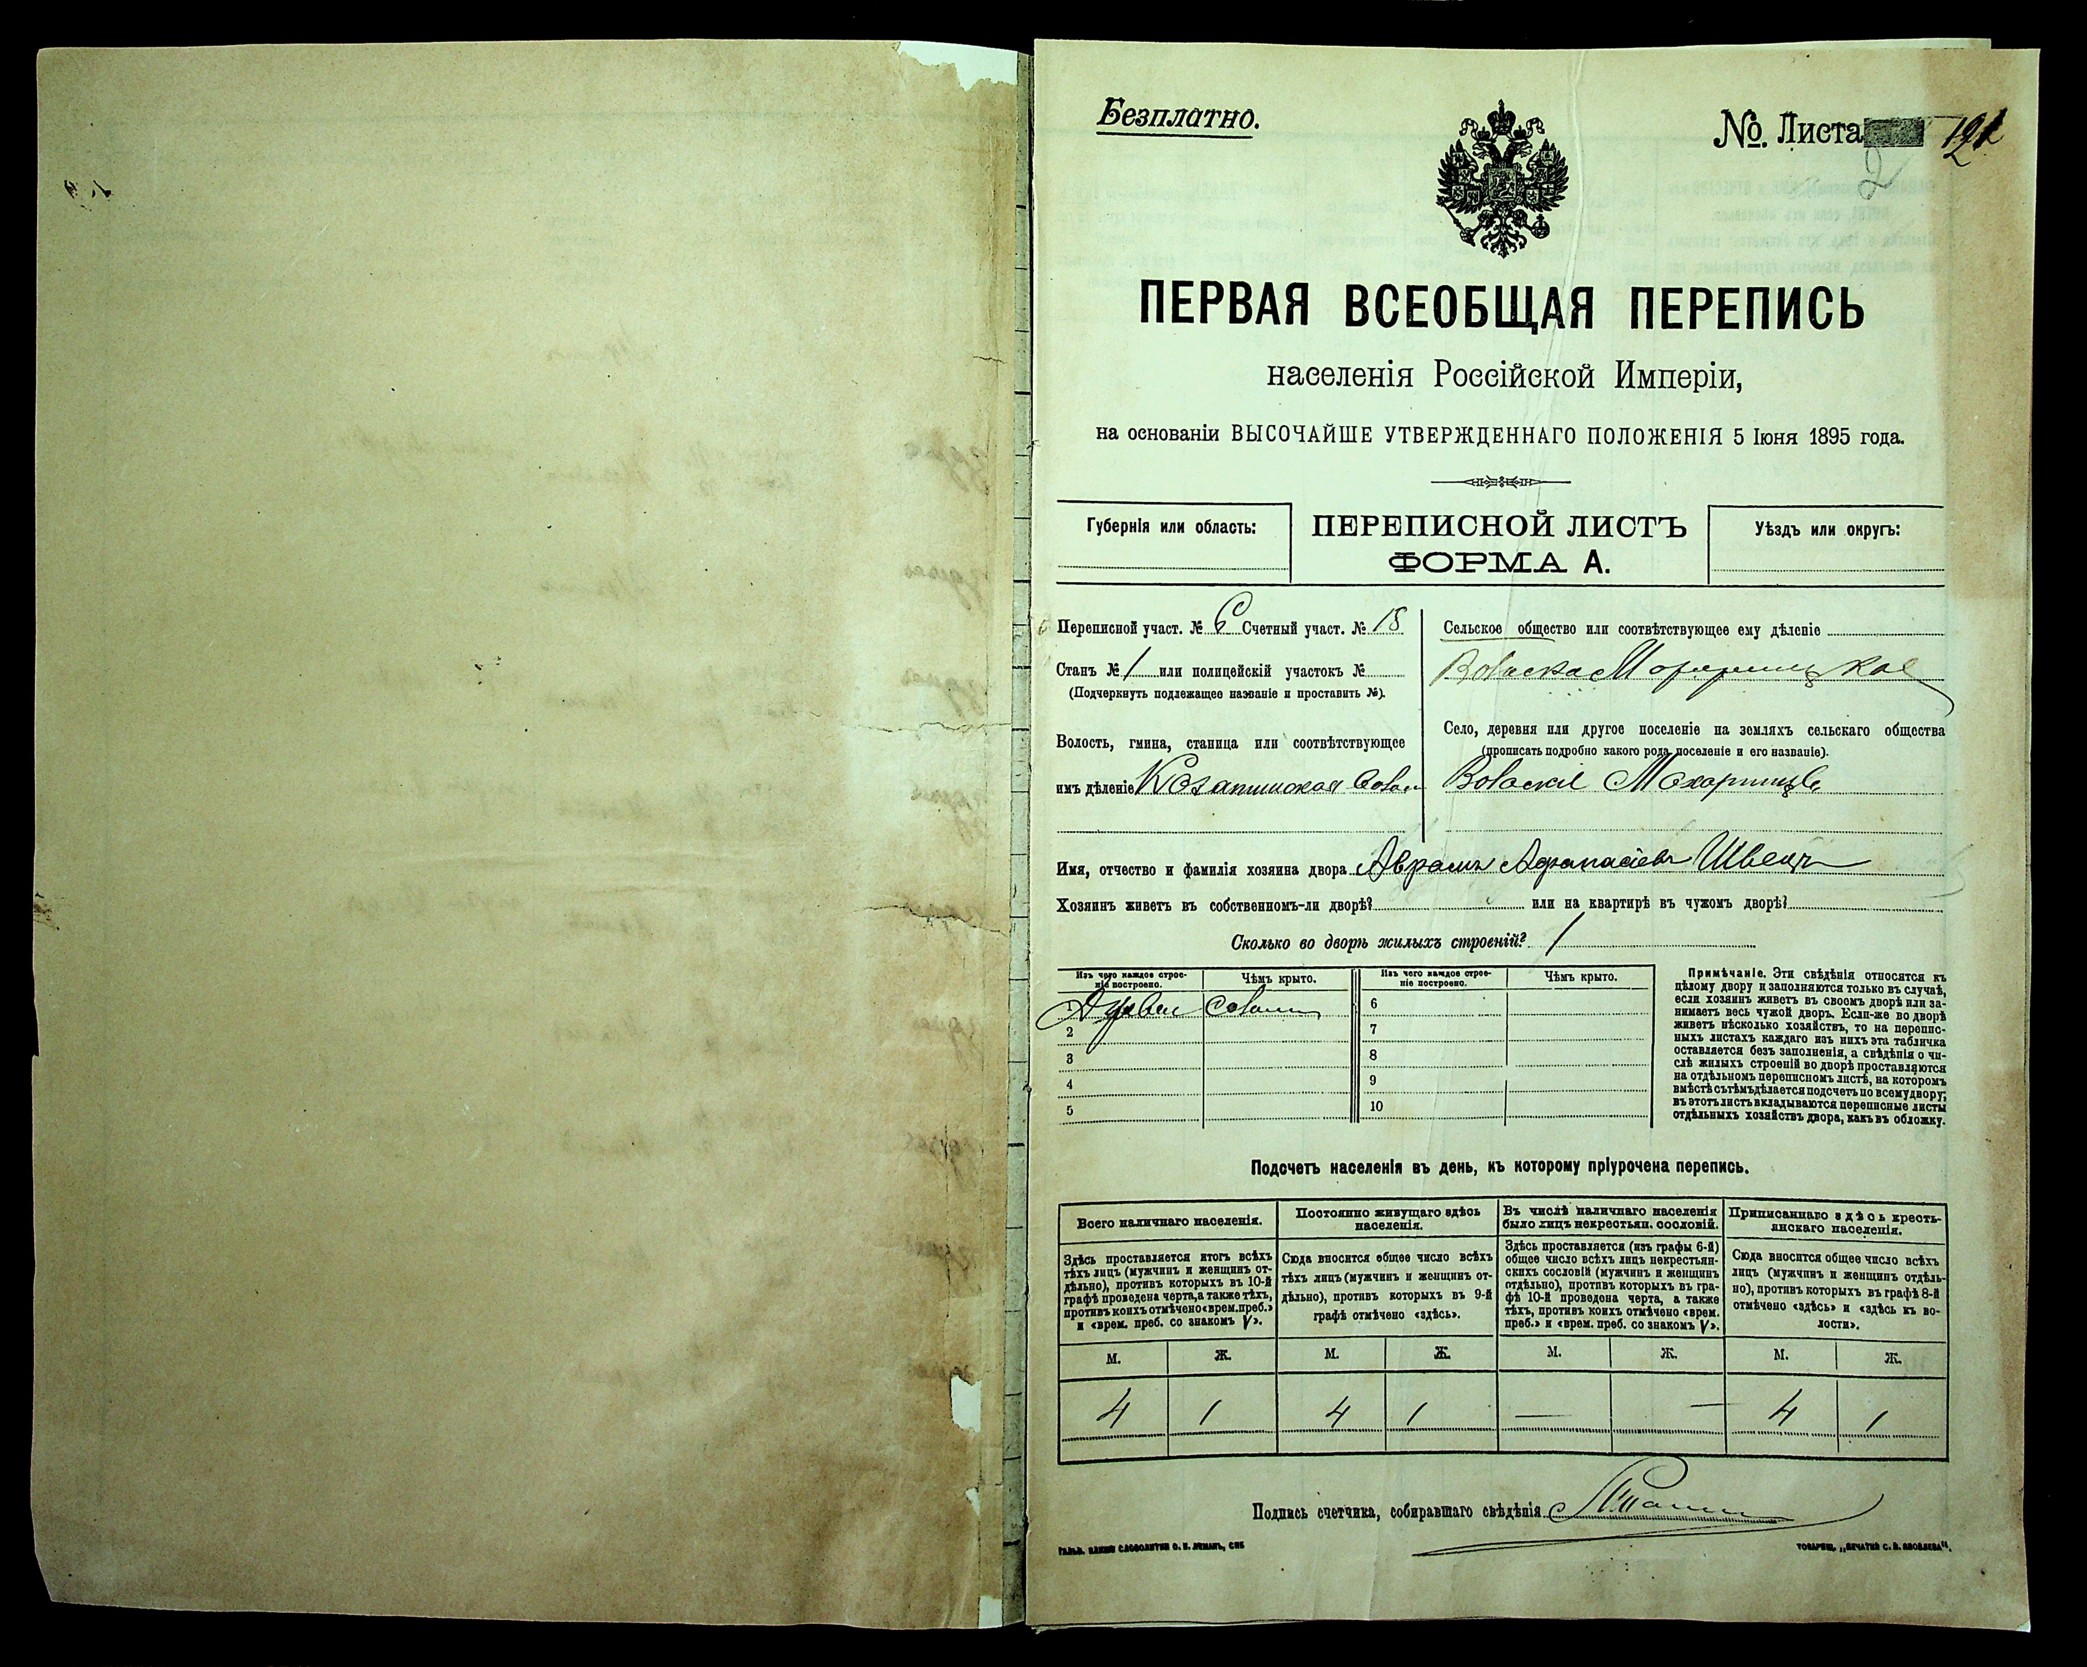 Безплатно.
№. Листа
2
ПЕРВАЯ ВСЕОБЩАЯ ПЕРЕПИСЬ
населенія Россійской Имперіи,
на основаніи ВЫСОЧАЙШЕ УТВЕРЖДЕННАГО ПОЛОЖЕНІЯ 5 Іюня 1895 года.
Губернія или область:
ПЕРЕПИСНОЙ ЛИСТЪ
ФОРМА А.
Уѣздъ или округъ:
Переписной участ. № 6 Счетный участ. № 18
Станъ № 1 или полицейскій участокъ №
(Подчеркнуть подлежащее названіе и проставить №).
Волость, гмина, станица или соотвѣтствующее
имъ дѣленіе
Сельское общество или соотвѣтствующее ему дѣленіе
Село, деревня или другое поселеніе на земляхъ сельскаго общества
(прописать подробно какого рода поселеніе и его названіе).
Имя, отчество и фамилія хозяина двора Аврамъ Афанасіевъ Швецъ
Хозяинъ живетъ въ собственномъ-ли дворѣ? или на квартирѣ въ чужомъ дворѣ?
Сколько во дворѣ жилыхъ строеній? 1
Изъ чего каждое строе-
ніе построено.
Чѣмъ крыто.
1
2
3
4
5
Изъ чего каждое строе-
ніе построено.
Чѣмъ крыто.
6
7
8
9
10
Примѣчаніе. Эти свѣдѣнія относятся къ
цѣлому двору и заполняются только въ случаѣ,
если хозяинъ живетъ въ своемъ дворѣ или за-
нимаетъ весь чужой дворъ. Если-же во дворѣ
живетъ нѣсколько хозяйствъ, то на перепис-
ныхъ листахъ каждаго изъ нихъ эта табличка
оставляется безъ заполненія, а свѣдѣнія о чи-
слѣ жилыхъ строеній во дворѣ проставляются
на отдѣльномъ переписномъ листѣ, на которомъ
вмѣстѣ съ тѣмъ дѣлается подсчетъ по всему двору;
въ этотъ листъ вкладываются переписные листы
отдѣльныхъ хозяйствъ двора, какъ въ обложку.
Подсчетъ населенія въ день, къ которому пріурочена перепись.
Всего наличнаго населенія.
Здѣсь проставляется итогъ всѣхъ
тѣхъ лицъ (мужчинъ и женщинъ от-
дѣльно), противъ которыхъ въ 10-й
графѣ проведена черта, а также тѣхъ,
противъ коихъ отмѣчено «врем. преб.»
и «врем. преб. со знакомъ V».
М. Ж.
4 1
Постоянно живущаго здѣсь
населенія.
Сюда вносится общее число всѣхъ
тѣхъ лицъ (мужчинъ и женщинъ от-
дѣльно), противъ которыхъ въ 9-й
графѣ отмѣчено «здѣсь».
М. Ж.
4 1
Въ числѣ наличнаго населенія
было лицъ некрестьян. сословій.
Здѣсь проставляется (изъ графы 6-й)
общее число всѣхъ лицъ некрестьян-
скихъ сословій (мужчинъ и женщинъ
отдѣльно), противъ которыхъ въ гра-
фѣ 10-й проведена черта, а также
тѣхъ, противъ коихъ отмѣчено «врем.
преб.» и «врем. преб. со знакомъ V».
М. Ж.
— —
Приписаннаго здѣсь кресть-
янскаго населенія.
Сюда вносится общее число всѣхъ
лицъ (мужчинъ и женщинъ отдѣль-
но), противъ которыхъ въ графѣ 8-й
отмѣчено «здѣсь» и «здѣсь къ во-
лости».
М. Ж.
4 1
Подпись счетчика, собиравшаго свѣдѣнія